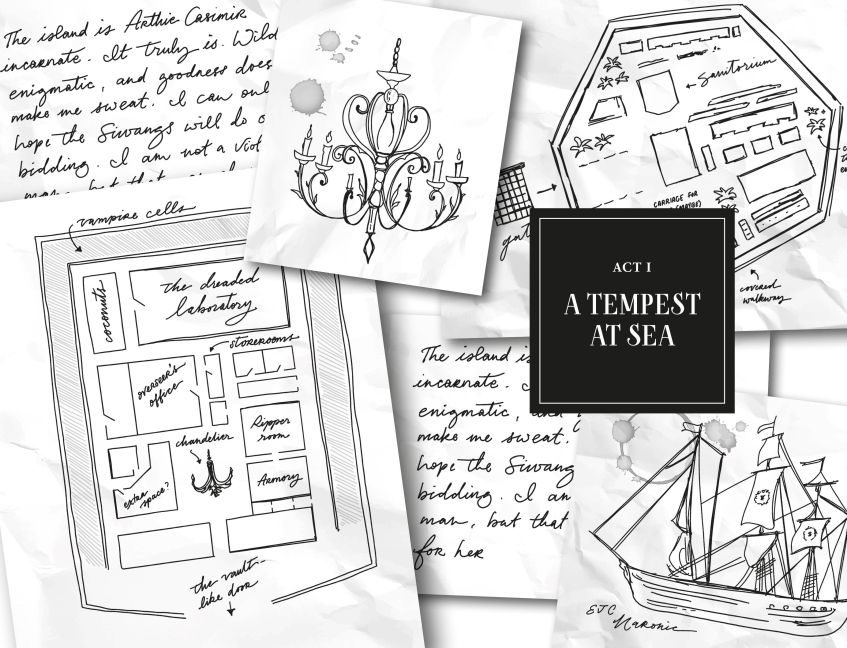 The island is Arthie Casimir
incarnate. It truly is. Wild
enigmatic, and goodness does
make me sweat. I can onl
hope the Siwangs will do
bidding. I am not a viol
man, but that
vampire cells
coconuts
the dreaded
laboratory
storerooms
overseer's
office
chandelier
Ripper
room
extra
space?
Armory
the vault-
like door
← Sanitorium
CARRIAGE FOR
(MAYBE)
covered
walkway
ACT I
A TEMPEST
AT SEA
The island is
incarnate.
enigmatic, and
make me sweat.
hope the Siwang
bidding. I am
man, but that
for her
EJC